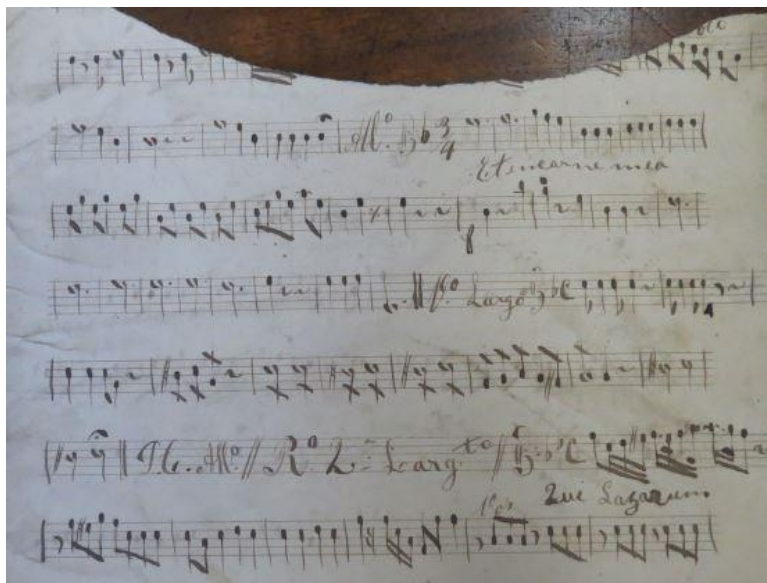 All.º 3 4
Et in carne mea
V.º Largo C
T. C. All.º R.º 2.º Larg.to C
Qui Lazarum